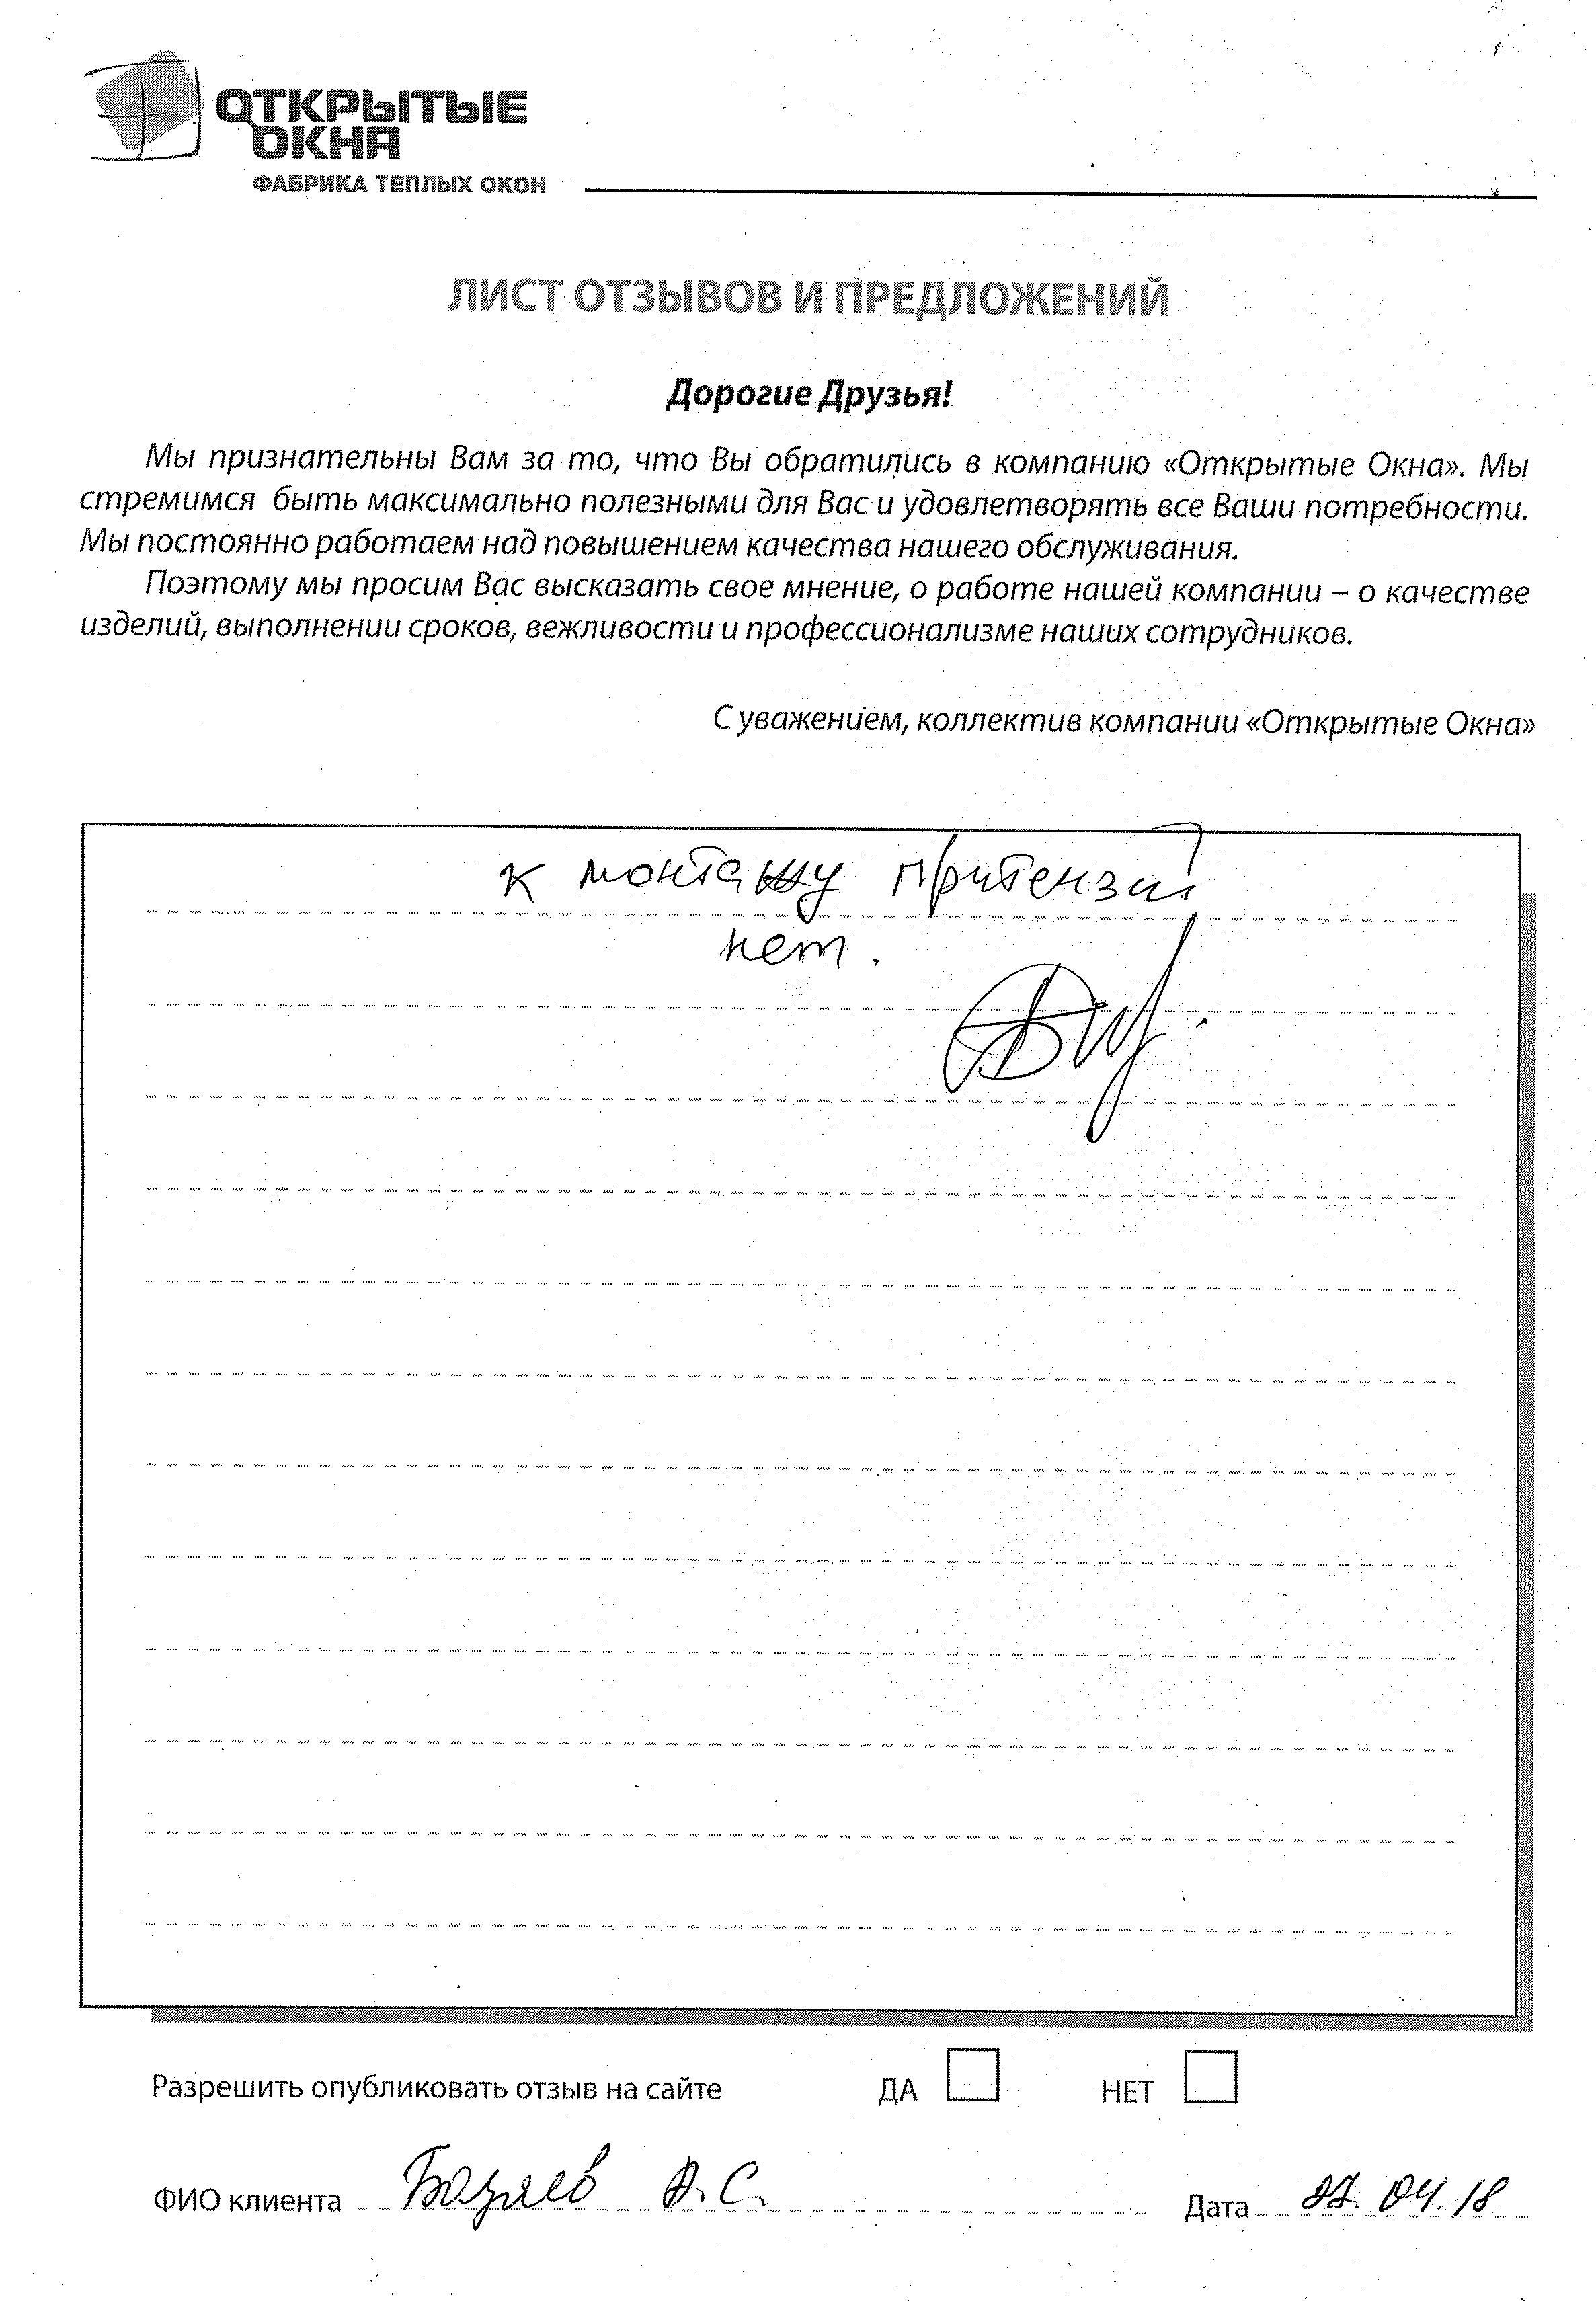 ОТКРЫТЫЕ
ОКНА
ФАБРИКА ТЕПЛЫХ ОКОН
ЛИСТ ОТЗЫВОВ И ПРЕДЛОЖЕНИЙ
Дорогие Друзья!
Мы признательны Вам за то, что Вы обратились в компанию «Открытые Окна». Мы
стремимся быть максимально полезными для Вас и удовлетворять все Ваши потребности.
Мы постоянно работаем над повышением качества нашего обслуживания.
Поэтому мы просим Вас высказать свое мнение, о работе нашей компании – о качестве
изделий, выполнении сроков, вежливости и профессионализме наших сотрудников.
С уважением, коллектив компании «Открытые Окна»
к монтажу притензий
нет.
Разрешить опубликовать отзыв на сайте ДА НЕТ
ФИО клиента С. Дата 04.18